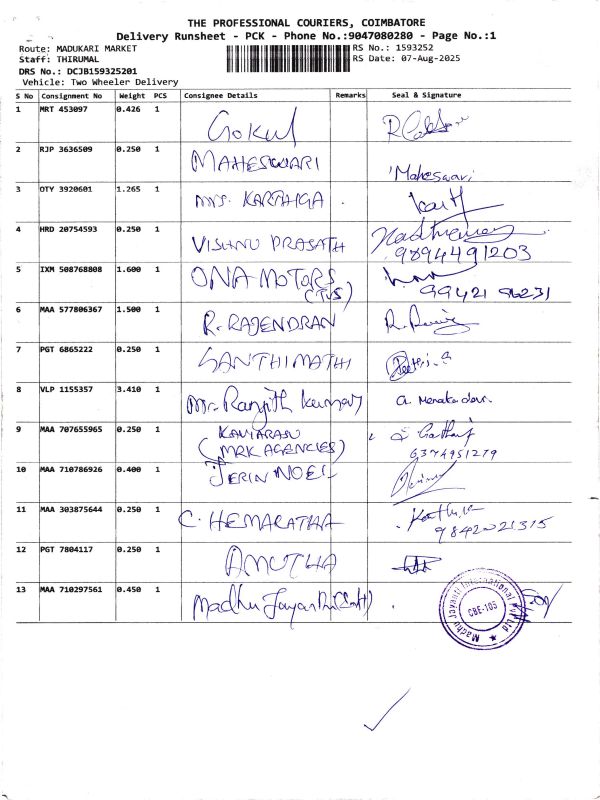 THE PROFESSIONAL COURIERS, COIMBATORE
Delivery Runsheet - PCK - Phone No.:9047080280 - Page No.:1
Route: MADUKARI MARKET RS No.: 1593252
Staff: THIRUMAL RS Date: 07-Aug-2025
DRS No.: DCJB159325201
Vehicle: Two Wheeler Delivery
S No Consignment No Weight PCS Consignee Details Remarks Seal & Signature
1 MRT 453097 0.426 1 Gokul
2 RJP 3636509 0.250 1 MAHESWARI Maheswari
3 OTY 3920601 1.265 1 MRS. KARTHIGA
4 HRD 20754593 0.250 1 VISHNU PRASATH
9894491203
5 IXM 508768808 1.600 1 ONA MOTORS
(TVS) 99421 96231
6 MAA 577806367 1.500 1 R. RAJENDRAN
7 PGT 6865222 0.250 1 SANTHIMATHI
8 VLP 1155357 3.410 1 Mr. Ranjith kumar
9 MAA 707655965 0.250 1
(MRK AGENCIES) 6374951279
10 MAA 710786926 0.400 1 JERIN NOEL
11 MAA 303875644 0.250 1 C. HEMALATHA
9842021315
12 PGT 7804117 0.250 1 AMUTHA
13 MAA 710297561 0.450 1 Madhu Jayanthi
Madhu Jayanti International Pvt Ltd
CBE-103